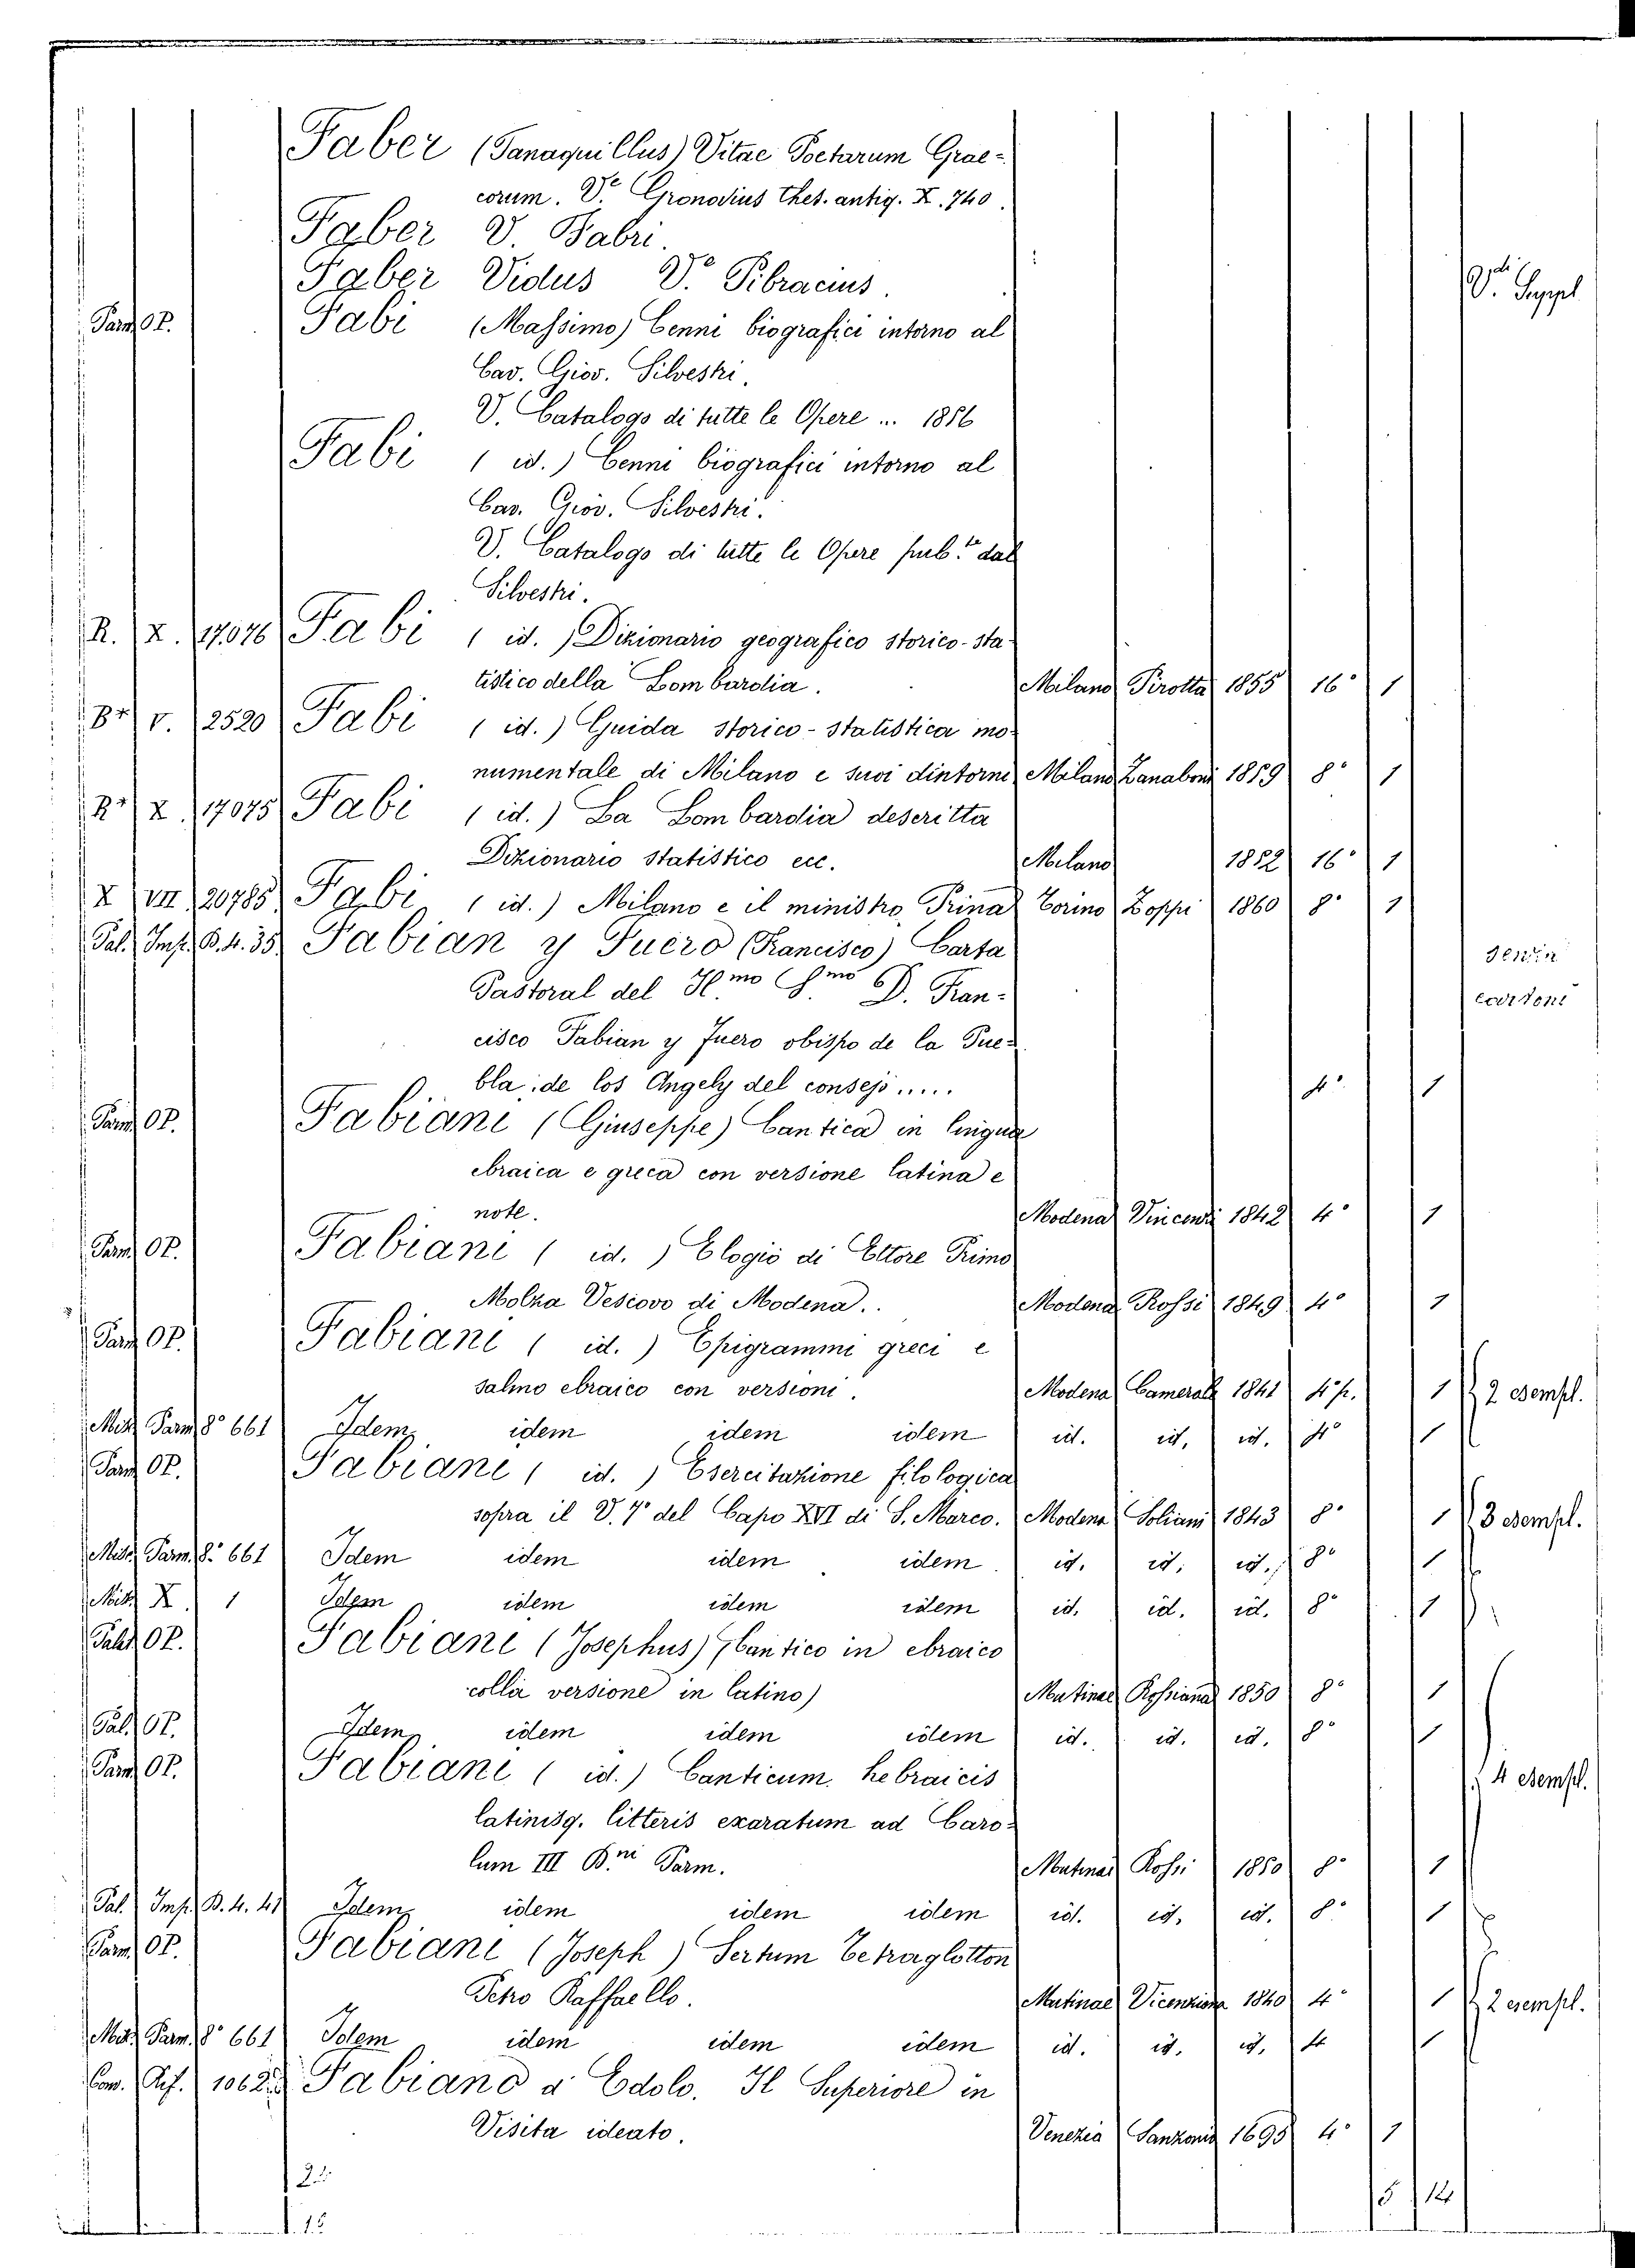 Faber (Tanaquillus) Vitae Poetarum Grae-
corum. Ve. Gronovius Thes. antiq. X. 740.
Faber V. Fabri.
Faber Vidus Ve. Pibracius. Vdi. Suppl.
Parm. OP. Fabi (Massimo) Cenni biografici intorno al
Cav. Giov. Silvestri.
V. Catalogo di tutte le Opere ... 1856
Fabi ( id. ) Cenni biografici intorno al
Cav. Giov. Silvestri.
V. Catalogo di tutte le Opere pub.te dal
Silvestri.
R. X. 17076 Fabi ( id. ) Dizionario geografico storico-sta-
tistico della Lombardia. Milano Pirotta 1855 16° 1
V. 2520 Fabi ( id. ) Guida storico-statistica mo-
numentale di Milano e suoi dintorni Milano Zanaboni 1859 8° 1
X 17075 Fabi ( id. ) La Lombardia descritta
Dizionario statistico ecc. Milano 1852 16° 1
X VII 20785 Fabi ( id. ) Milano e il ministro Prina Torino Zoppi 1860 8° 1
Pal. Imp. B. 4. 35 Fabian y Fuero (Francisco) Carta
Pastoral del Il.mo S.mo D. Fran-
cisco Fabian y Fuero obispo de la Pue-
bla de los Angely del consejo ..... 4° 1
Parm. OP. Fabiani (Giuseppe) Cantica in lingua
ebraica e greca con versione latina e
note. Modena Vincenzi 1842 4° 1
Parm. OP. Fabiani ( id. ) Elogio di Ettore Primo
Molza Vescovo di Modena. Modena Rossi 1849 4° 1
Parm. OP. Fabiani ( id. ) Epigrammi greci e
salmo ebraico con versioni. Modena Camerale 1841 4° p. 1 2 esempl.
Misc. Parm. 8° 661 Idem idem idem idem id. id. id. 4° 1
Parm. OP. Fabiani ( id. ) Esercitazione filologica
sopra il V. 7° del Capo XVI di S. Marco. Modena Soliani 1843 8° 1 3 esempl.
Misc. Parm. 8° 661 Idem idem idem idem id. id. id. 8° 1
Misc. X. 1 Idem idem idem idem id. id. id. 8° 1
OP. Fabiani (Josephus) (Cantico in ebraico
colla versione in latino) Mutinae Rossiana 1850 8° 1
Pal. OP. Idem idem idem idem id. id. id. 8° 1
Parm. OP. Fabiani ( id. ) Canticum hebraicis 4 esempl.
latinisq. litteris exaratum ad Caro-
lum III B.ni Parm. Mutinae Rossi 1850 8° 1
Pal. Imp. B. 4. 41 Idem idem idem idem id. id. id. 8° 1
Parm. OP. Fabiani (Joseph) Sertum Tetraglotton
Petro Raffaello. Mutinae Vicenziana 1840 4° 1 2 esempl.
Misc. Parm. 8° 661 Idem idem idem idem id. id. id. 4 1
Fabiano d' Edolo. Il Superiore in
Visita ideato. Venezia Sanzonio 1695 4° 1
22 5 14
15